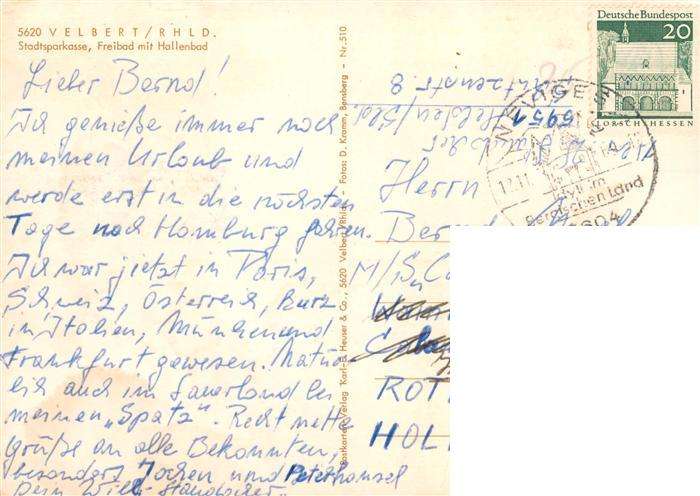 5620 VELBERT/RHLD.
Stadtsparkasse, Freibad mit Hallenbad
Lieber Bernd!
Ich genieße immer noch
meinen Urlaub und
werde erst in die nächsten
Tage nach Hamburg fahren.
Ich war jietzt in Paris,
Schweiz, Österreich, kurz
in Italien, München und
Frankfurt gewesen. Natür
lich auch im Sauerland bei
meinen „Spatz". Recht nette
grüße an alle Bekannten,
besonders Jochen und Peterhansel
Dein Willi
Postkarten-Verlag Karl-E. Heuser & Co., 5620 Velbert/Rhld. - Fotos: D. Kramm, Bensberg - Nr. 510
5951 Helden/Sld
8
Deutsche Bundespost
20
LORSCH/HESSEN
NEVIGES
12.11
Bergischen Land
5604
Herrn
M/S
ROT
HOL